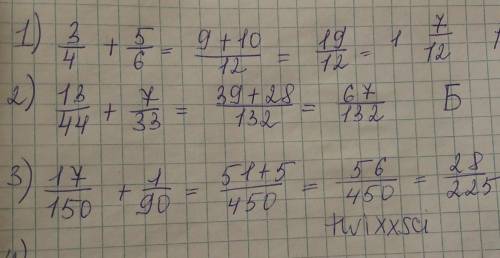 1) 3/4 + 5/6 = (9 + 10)/12 = 19/12 = 1 7/12
2) 13/44 + 7/33 = (39 + 28)/132 = 67/132 Б
3) 17/150 + 1/90 = (51 + 5)/450 = 56/450 = 28/225